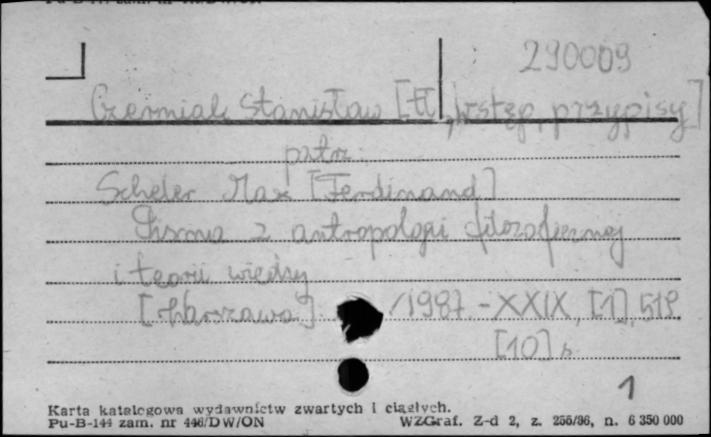 290009
Czerniak Stanisław [tł., wstęp, przypisy]
patrz:
Scheler Max [Ferdinand]
Pisma z antropologii filozoficznej
i teorii wiedzy
[Warszawa] /1987 - XXIX, [1], 518,
[10] s.
1
Karta katalogowa wydawnictw zwartych i ciągłych.
Pu-B-144 zam. nr 446/DW/ON WZGraf. Z-d 2, z. 255/86, n. 6 350 000